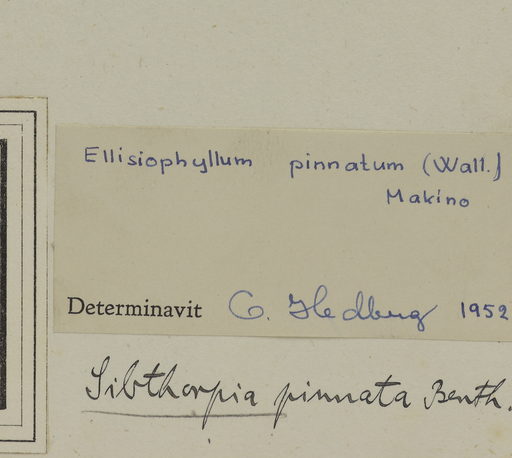 Ellisiophyllum pinnatum (Wall.)
Makino
Determinavit O. Hedberg 1952
Sibthorpia pinnata Benth.